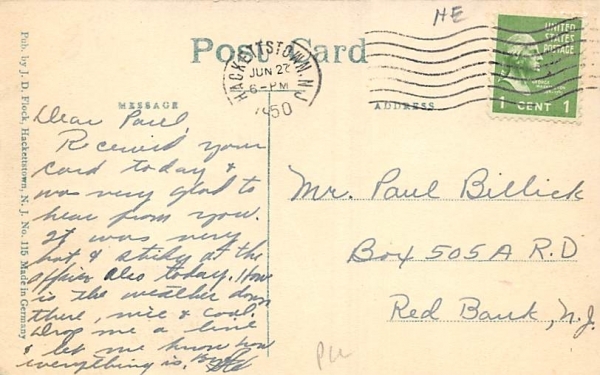 HE
Post Card
UNITED
STATES
POSTAGE
1 CENT 1
HACKETTSTOWN, N.J.
JUN 27
6-PM
1950
MESSAGE
ADDRESS
Dear Paul,
Received your
card today &
was very glad to
hear from you.
It was very
hot & sticky at the
office also today. How
is the weather down
there, nice & cool.
Drop me a line
& let me know how
everything is.
Mr. Paul Billick
Box 505A R.D
Red Bank, N.J.
Pub. by J. D. Flock, Hackettstown, N. J. No. 115 Made in Germany